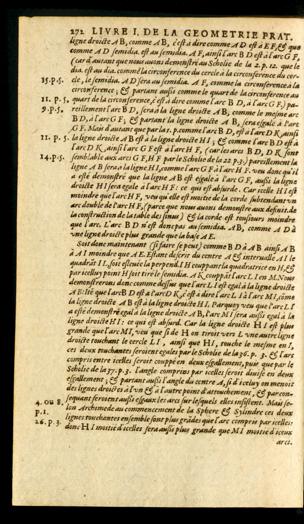 272 LIVRE I. DE LA GEOMETRIE PRAT.
ligne droicte A B, comme A B, c'est à dire comme A D est à E F, & que
comme A D semidia. est au semidia. A F, ainsi l'arc B D est à l'arc G F,
(car d'autant que nous avons demonstré au Scholie de la 2. p. 12. que le
dia. est au dia. comme la circonference du cercle à la circonference du cer-
15. p. 5. cle, le semidia. A D sera au semidia. A F, comme la circonference à la
circonference; & partant aussi comme le quart de la circonference au
11. p. 5. quart de la circonference, c'est à dire comme l'arc B D, à l'arc G F,) pa-
9. p. 5. reillement l'arc B D, sera à la ligne droicte A B, comme le mesme arc
B D, à l'arc G F; & partant la ligne droicte A B, sera egale à l'arc
G F. Mais d'autant que par la 1. p. comme l'arc B D, est à l'arc D K, ainsi
11. p. 5. la ligne droicte A B est à la ligne droicte H I; & comme l'arc B D est à
l'arc D K, ainsi l'arc G F est à l'arc H F, (car les arcs B D, D K sont
14. p. 5. semblables aux arcs G F, H F par le Scholie de la 22. p. 3.) pareillement la
ligne A B sera à la ligne H I, comme l'arc G F à l'arc H F. veu donc qu'il
a esté demonstré que la ligne A B est egale à l'arc G F, aussi la ligne
droicte H I sera egale à l'arc H F: ce qui est absurde. Car icelle H I est
moindre que l'arc H F, veu qu'elle est moitié de la corde subtendant un
arc double de l'arc H F, (parce que nous avons demonstré aux definit. de
la construction de la table des sinus) & la corde est tousjours moindre
que l'arc. L'arc B D n'est donc pas au semidia. A B, comme A D à
une ligne droicte plus grande que la base A E.
Soit donc maintenant (si faire se peut) comme B D à A B ainsi A B
à A I moindre que A E. Estant descrit du centre A & intervalle A I le
quadrāt I L, soit eslevée la perpend. I H couppant la quadratrice en H, &
par iceluy point H soit tiré le semidia. A K, couppāt l'arc L I en M. Nous
demonstrerons donc comme dessus que l'arc L I est egal à la ligne droicte
la ligne droicte A B est à la ligne droicte H I. Parquoy veu que l'arc L I
a esté demonstré egal à la ligne droicte A B, l'arc M I sera aussi egal à la
ligne droicte H I: ce qui est absurd. Car la ligne droicte H I est plus
grande que l'arc M I, veu que si de H on tiroit vers L une autre ligne
droicte touchant le cercle L I, ainsi que H I, touche le mesme en I,
ces deux touchantes seroient egales par le Scholie de la 36. p. 3. & l'arc
compris entre icelles seroit couppé en deux egallement, puis que par le
Scholie de la 27. p. 3. l'angle compris par icelles seroit divisé en deux
egallement; & partant aussi l'angle du centre A, si d'iceluy on menoit
des lignes droictes à l'un & à l'autre point d'attouchement, & par con-
4. ou 8. sequant seroient aussi egaux les arcs sur lesquels elles insistent. Mais se-
p. 1. lon Archimede au commencement de la Sphere & Sylindre ces deux
lignes touchantes ensemble sont plus grādes que l'arc compris par icelles:
26. p. 3. donc H I moitié d'icelles sera aussi plus grande que M I moitié d'iceux
arcs.